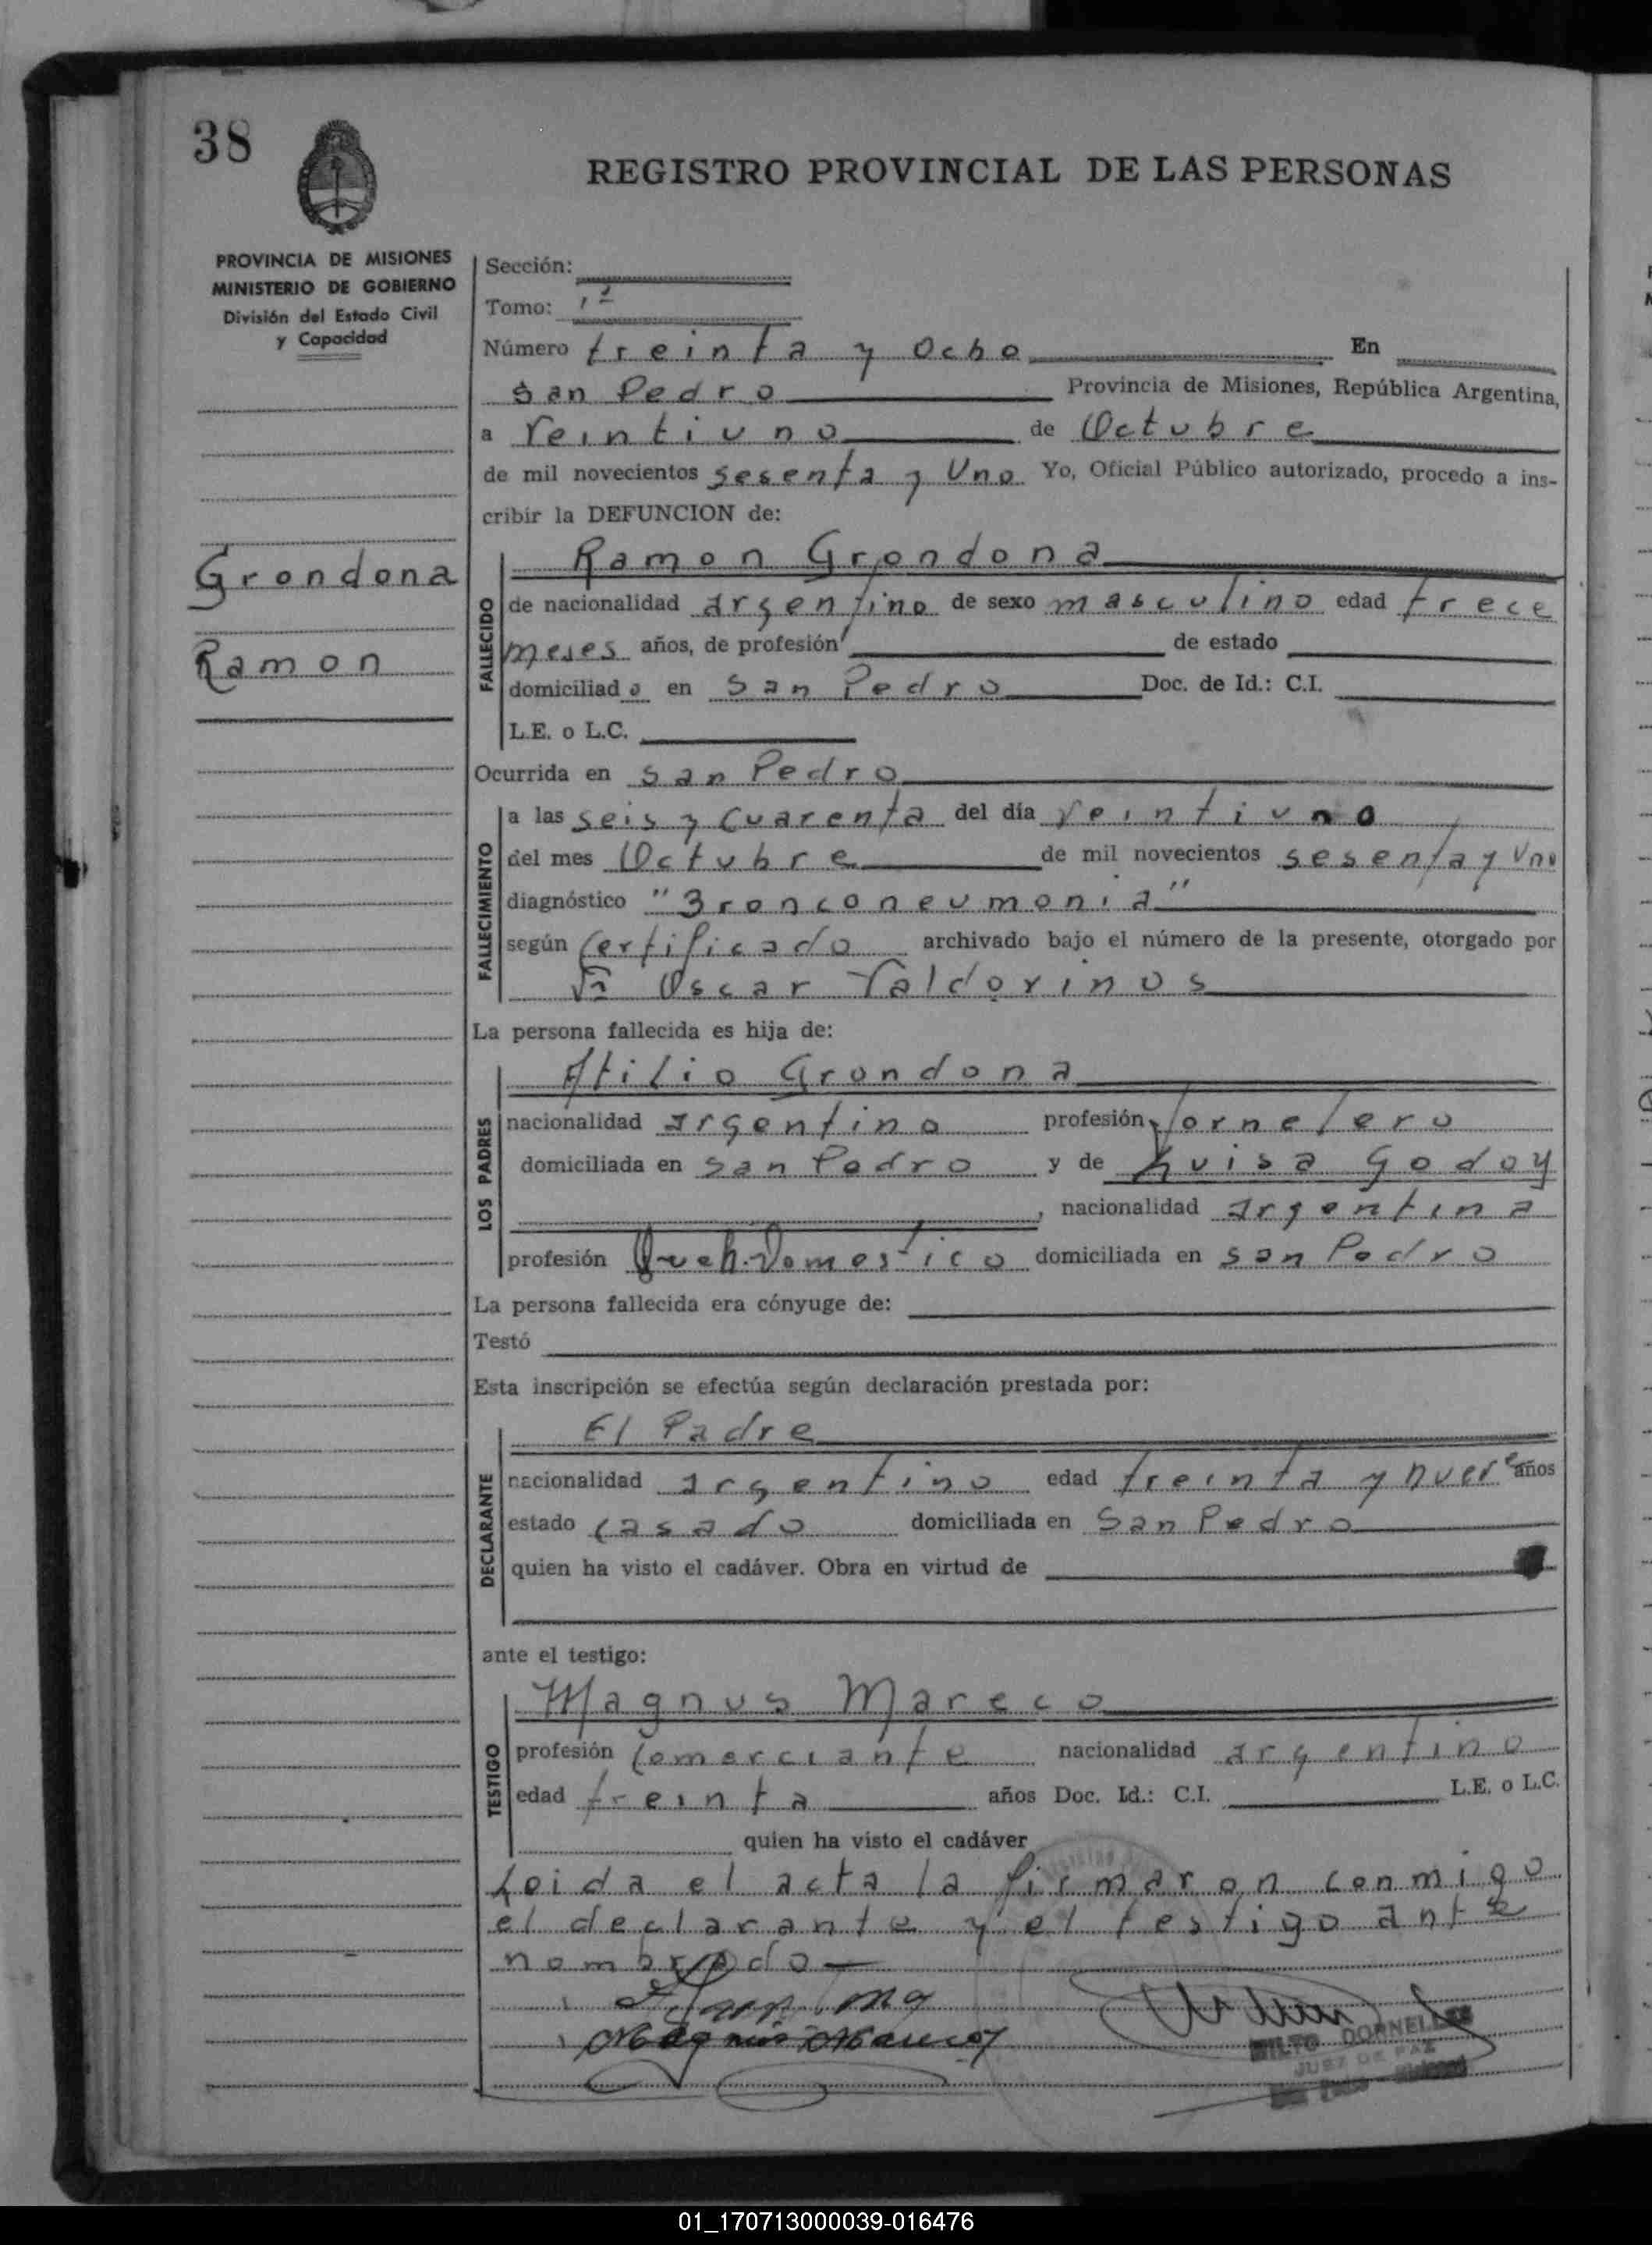 38
REGISTRO PROVINCIAL DE LAS PERSONAS
PROVINCIA DE MISIONES
MINISTERIO DE GOBIERNO
División del Estado Civil
y Capacidad
Grondona
Ramon
Sección:
Tomo: 1º
Número treinta y Ocho En
San Pedro Provincia de Misiones, República Argentina,
a Veintiuno de Octubre
de mil novecientos sesenta y Uno Yo, Oficial Público autorizado, procedo a ins-
cribir la DEFUNCION de:
FALLECIDO
Ramon Grondona
de nacionalidad argentino de sexo masculino edad trece
meses años, de profesión de estado
domiciliado en San Pedro Doc. de Id.: C.I.
L.E. o L.C.
Ocurrida en San Pedro
FALLECIMIENTO
a las seis y Cuarenta del día veintiuno
del mes Octubre de mil novecientos sesenta y Uno
diagnóstico "Bronconeumonia"
según Certificado archivado bajo el número de la presente, otorgado por
Oscar Valdovinos
La persona fallecida es hija de:
LOS PADRES
Atilio Grondona
nacionalidad argentino profesión Jornalero
domiciliada en San Pedro y de Luisa Godoy
, nacionalidad argentina
profesión Queh. Domestico domiciliada en San Pedro
La persona fallecida era cónyuge de:
Testó
Esta inscripción se efectúa según declaración prestada por:
DECLARANTE
El Padre
nacionalidad argentino edad treinta y nueve años
estado casado domiciliada en San Pedro
quien ha visto el cadáver. Obra en virtud de
ante el testigo:
TESTIGO
Magnus Mareco
profesión Comerciante nacionalidad argentino
edad treinta años Doc. Id.: C.I. L.E. o L.C.
quien ha visto el cadáver
Leida el acta la firmaron conmigo
el declarante y el testigo ante
nombrado
Magnus Mareco
MILTO DORNELLES
JUEZ DE PAZ
01_170713000039-016476